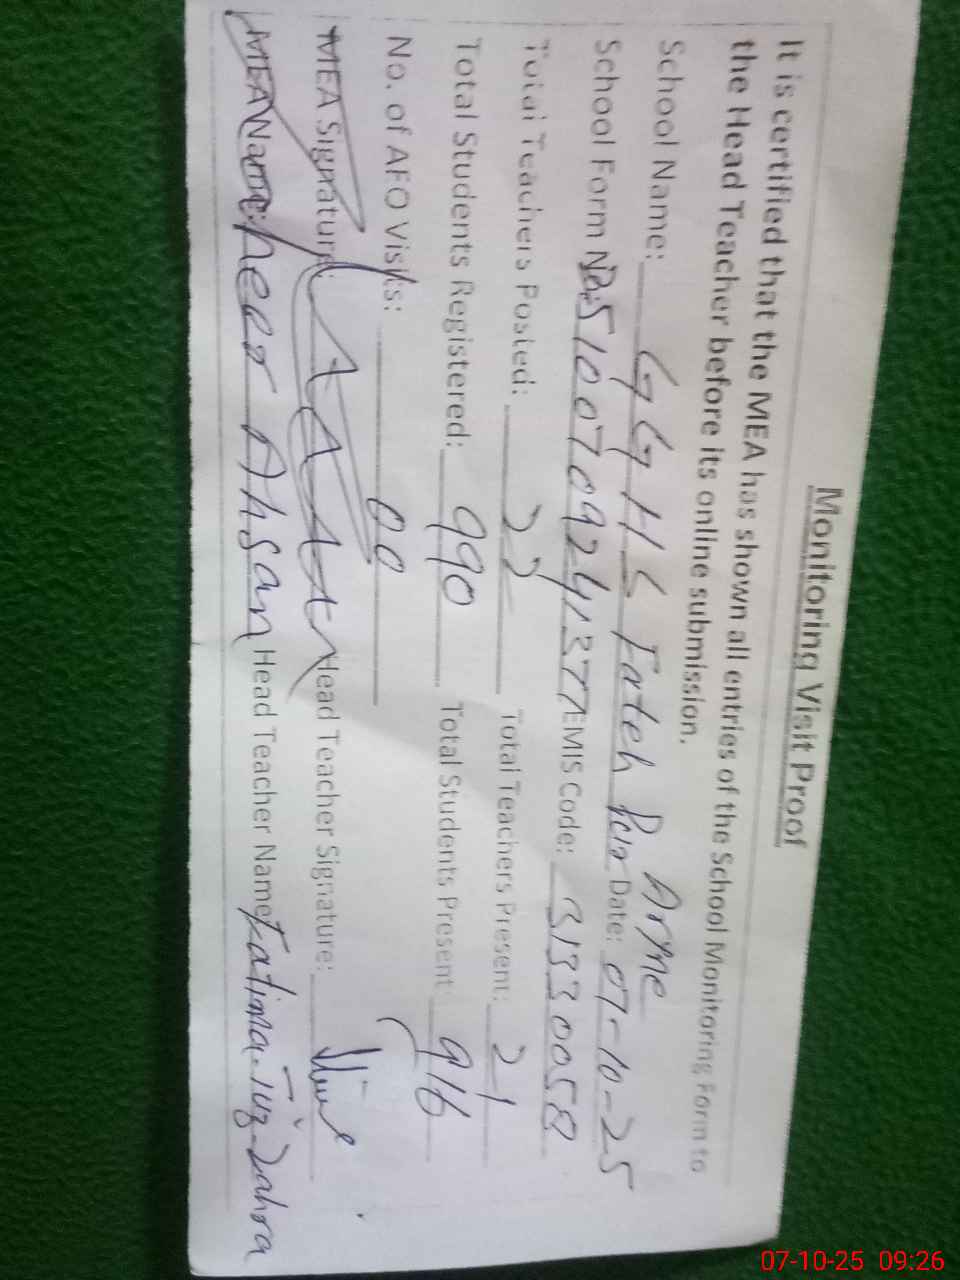 Monitoring Visit Proof
It is certified that the MEA has shown all entries of the School Monitoring Form to
the Head Teacher before its online submission.
School Name: GGHS Fateh Date: 07-10-25
School Form No: 5100709241377 EMIS Code: 31330058
Total Teachers Posted: 22 Total Teachers Present: 21
Total Students Registered: 990 Total Students Present: 916
No. of AEO Visits: 00
MEA Signature: Head Teacher Signature:
MEA Name: Ahsan Head Teacher Name Fatima-Tuz-Zahra
07-10-25 09:26